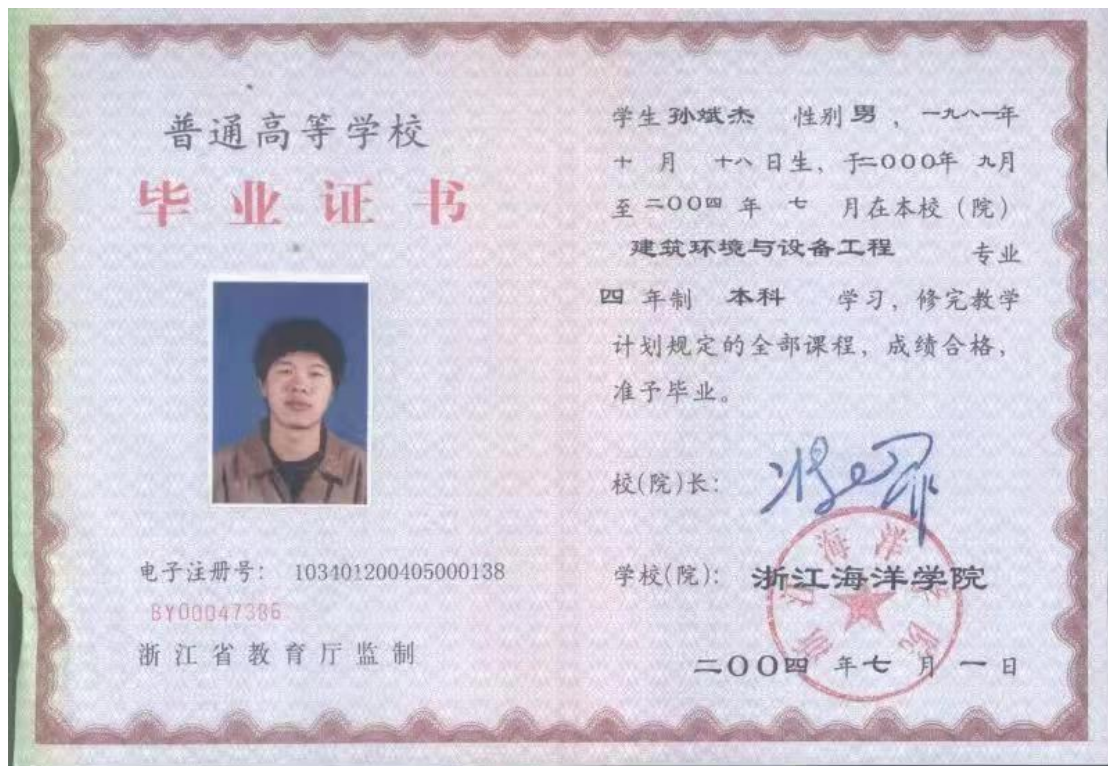 普通高等学校
毕业证书
电子注册号: 103401200405000138
BY00047386
浙江省教育厅监制
学生 孙斌杰 性别 男 ,一九八一年
十 月 十八 日生, 于二000年 九月
至 二00四 年 七 月在本校(院)
建筑环境与设备工程 专业
四 年制 本科 学习, 修完教学
计划规定的全部课程, 成绩合格,
准予毕业。
校(院)长:
学校(院): 浙江海洋学院
浙江海洋学院
二00四 年 七 月 一 日